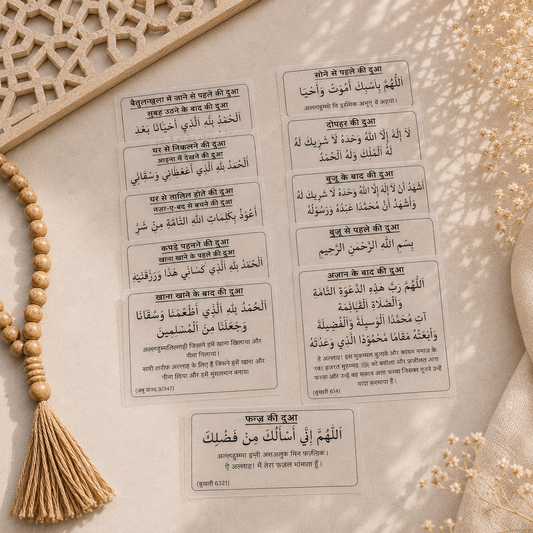 बैतुलखला में जाने से पहले की दुआ
सुबह उठने के बाद की दुआ
اَلْحَمْدُ لِلَّهِ الَّذِي أَحْيَانَا بَعْدَ
घर से निकलने की दुआ
आइना में देखने की दुआ
اَلْحَمْدُ لِلَّهِ الَّذِي
وَسَقَانِي
घर से
होते की दुआ
नज़र-ए-बद से बचने की दुआ
أَعُوذُ بِكَلِمَاتِ اللَّهِ التَّامَّةِ مِنْ شَرِّ
कपड़े पहनने की दुआ
खाना खाने के पहले की दुआ
اَلْحَمْدُ لِلَّهِ الَّذِي كَسَانِي هَذَا وَرَزَقَنِيْهِ
खाना खाने के बाद की दुआ
اَلْحَمْدُ لِلَّهِ الَّذِي أَطْعَمَنَا وَسَقَانَا
وَجَعَلَنَا مِنَ الْمُسْلِمِينَ
जिसने हमें खाना खिलाया और
पीना पिलाया।
सारी तारीफ अल्लाह के लिए है जिसने हमें खाना और
पीना दिया और हमें मुसलमान बनाया
3/347)
सोने से पहले की दुआ
اَللَّهُمَّ بِاسْمِكَ أَمُوْتُ وَأَحْيَا
दोपहर की दुआ
لَا إِلَهَ إِلَّا اللَّهُ وَحْدَهُ لَا شَرِيكَ لَهُ
لَهُ الْمُلْكُ وَلَهُ الْحَمْدُ
वुजू के बाद की दुआ
أَشْهَدُ أَنْ لَا إِلَهَ إِلَّا اللَّهُ وَحْدَهُ لَا شَرِيكَ لَهُ
وَأَشْهَدُ أَنَّ مُحَمَّدًا عَبْدُهُ وَرَسُوْلُهُ
वुजू से पहले की दुआ
بِسْمِ اللَّهِ الرَّحْمَنِ الرَّحِيْمِ
अज़ान के बाद की दुआ
اَللَّهُمَّ رَبَّ هَذِهِ الدَّعْوَةِ التَّامَّةِ
وَالصَّلَاةِ الْقَائِمَةِ
آتِ مُحَمَّدًا الْوَسِيلَةَ وَالْفَضِيلَةَ
وَابْعَثْهُ مَقَامًا مَحْمُودًا الَّذِي وَعَدْتَهُ
हे अल्लाह! इस मुकम्मल बुलावे और कायम नमाज़ के
रब! हज़रत मुहम्मद ﷺ को वसीला और फ़ज़ीलत अता
फरमा और उन्हें वह मकाम अता फरमा जिसका तूने उन्हें
वादा फ़रमाया है।
(बुखारी 614)
फज्र की दुआ
اَللَّهُمَّ إِنِّي أَسْأَلُكَ مِنْ فَضْلِكَ
अल्लाहुम्मा इन्नी असअलुक मिन फ़ज़्लिक।
ऐ अल्लाह! मैं तेरा फ़ज़ल मांगता हूँ।
(बुखारी 6321)